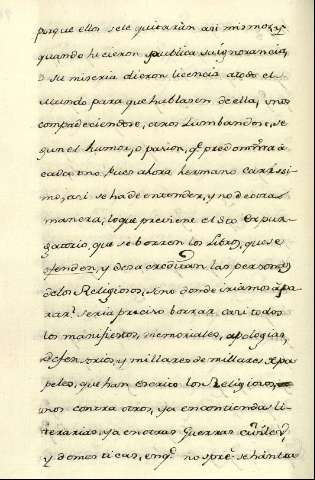 porque ellos se le quitaràn asi mismos, y
quando hicieron publica su ignorancia,
ò su miseria dieron licencia atodo el
mundo para que hablasen de ella, unos
compadeciendose, otros zumbandose, se
gun el humor, o pasion, qe. predomina à
cada uno. Pues ahora hermano carissi
mo, asi se ha de entender, y no de otra
manera, lo que previene el dro Expur-
gatorio, que se borren los Libros, que se
ofenden, y desacreditan las personas
delos Religiosos, sino donde iriamos à pa
rar? seria preciso borrar casi todos
los manifiestos, memoriales, apologias,
Defensorios, y millares de millares de pa
peles, que han escrito los Religiosos,
unos contra otros, ya en contiendas li-
terarias, ya en otras Guerras civiles,
y domesticas, en qe. no spre. se han tra